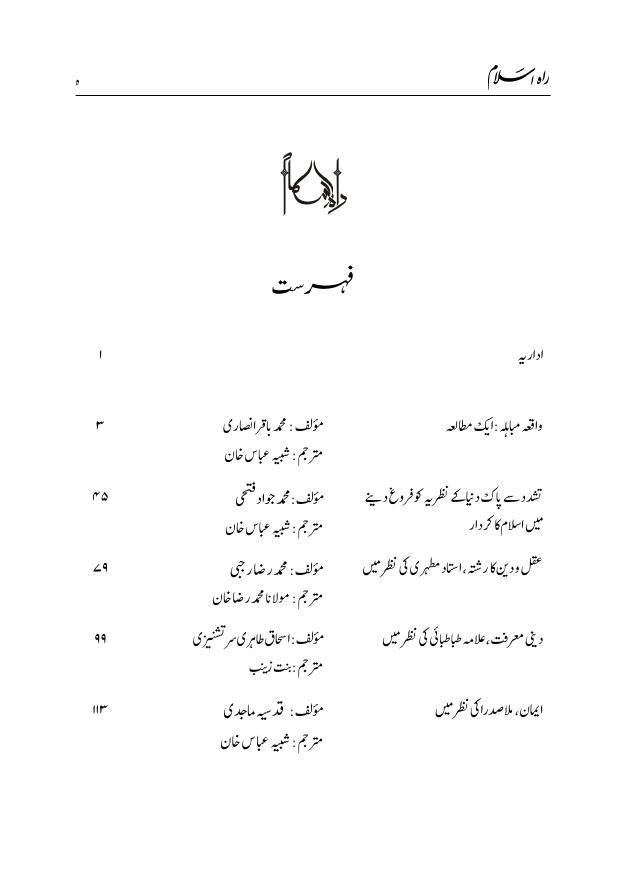 راہ اسلام ۵
راہ اسلام
فہرست
اداریہ ۱
واقعہ مباہلہ :ایک مطالعہ مؤلف : محمد باقر انصاری ۳
مترجم : شبیہ عباس خان
تشدد سے پاک دنیا کے نظریہ کو فروغ دینے مؤلف :محمد جواد فتحی ۴۵
میں اسلام کا کردار مترجم : شبیہ عباس خان
عقل و دین کا رشتہ ،استاد مطہری کی نظر میں مؤلف : محمد رضا رجبی ۷۹
مترجم : مولانا محمد رضا خان
دینی معرفت ،علامہ طباطبائی کی نظر میں مؤلف :اسحاق طاہری سرتشنیزی ۹۹
مترجم : بنت زینب
ایمان، ملا صدرا کی نظر میں مؤلف : قدسیہ ماجدی ۱۱۳
مترجم : شبیہ عباس خان